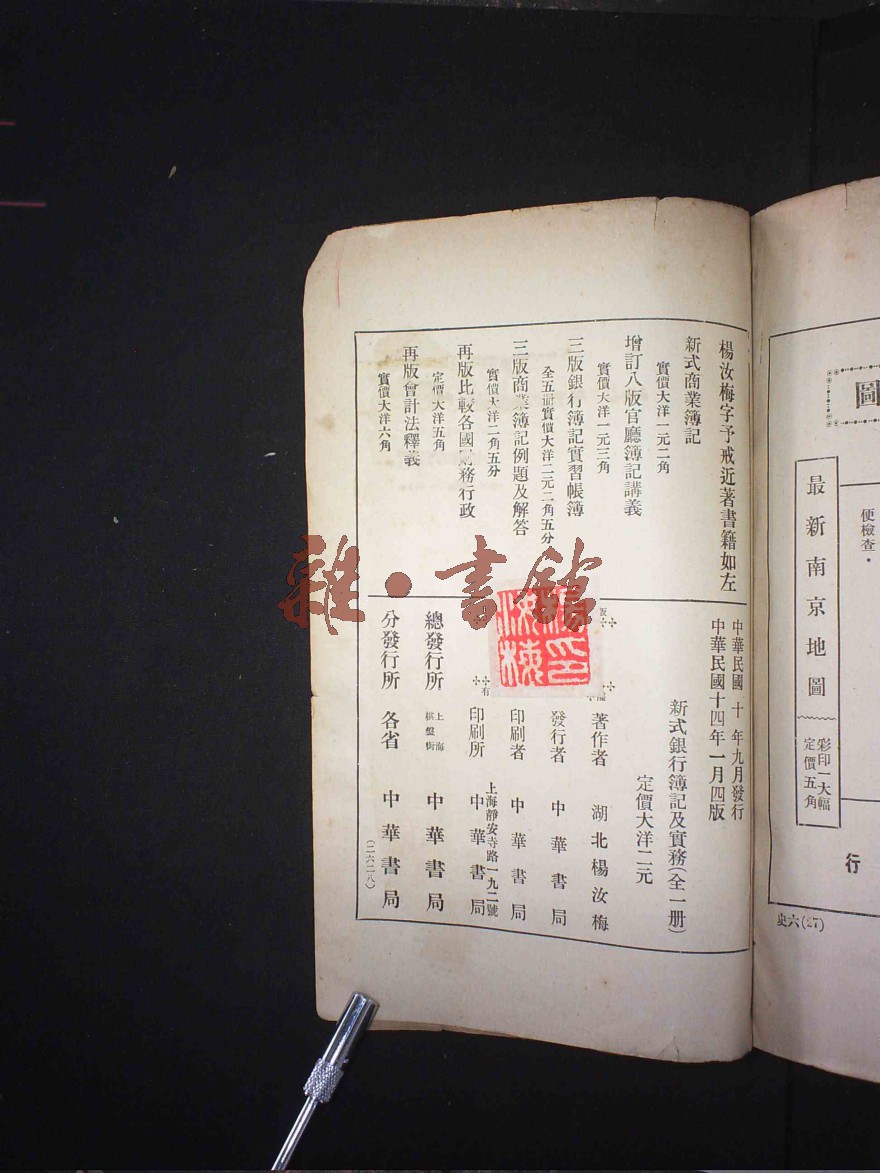 圖
便檢查・
最新南京地圖
彩印一大幅
定價五角
行
史六(27)
楊汝梅字予戒近著書籍如左
新式商業簿記
實價大洋一元二角
增訂八版官廳簿記講義
實價大洋一元三角
三版銀行簿記實習帳簿
全五冊實價大洋二元二角五分
三版商業簿記例題及解答
實價大洋二角五分
再版比較各國財務行政
定價大洋五角
再版會計法釋義
實價大洋六角
中華民國十年九月發行
中華民國十四年一月四版
新式銀行簿記及實務(全一册)
定價大洋二元
著作者 湖北楊汝梅
發行者 中華書局
印刷者 中華書局
上海靜安寺路一九二號
印刷所 中華書局
總發行所 上海棋盤街 中華書局
分發行所 各省 中華書局
(二六二八)
版
權
有
楊印汝梅
雜・書館